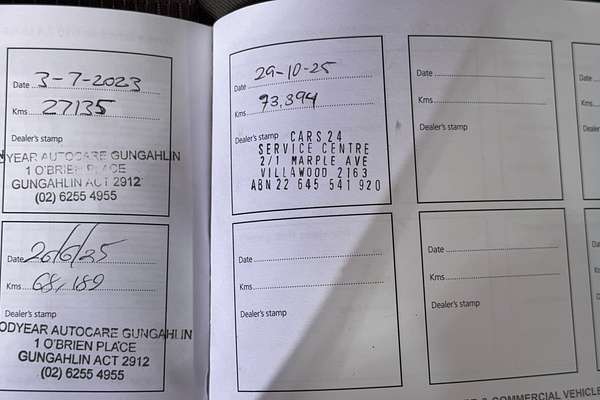 Date 3-7-2023
Kms 27135
Dealer's stamp
YEAR AUTOCARE GUNGAHLIN
1 O'BRIEN PLACE
GUNGAHLIN ACT 2912
(02) 6255 4955
Date 26/6/25
Kms 68,189
Dealer's stamp
ODYEAR AUTOCARE GUNGAHLIN
1 O'BRIEN PLACE
GUNGAHLIN ACT 2912
(02) 6255 4955
Date 29-10-25
Kms 73,394
Dealer's stamp CARS 24
SERVICE CENTRE
2/1 MARPLE AVE
VILLAWOOD 2163
ABN 22 645 541 920
Date
Kms
Dealer's stamp
Date
Kms
Dealer's stamp
Date
Kms
Dealer's stamp
Date
Kms
Dealer's
Date
Kms
Dealer's
& COMMERCIAL VEHICLE